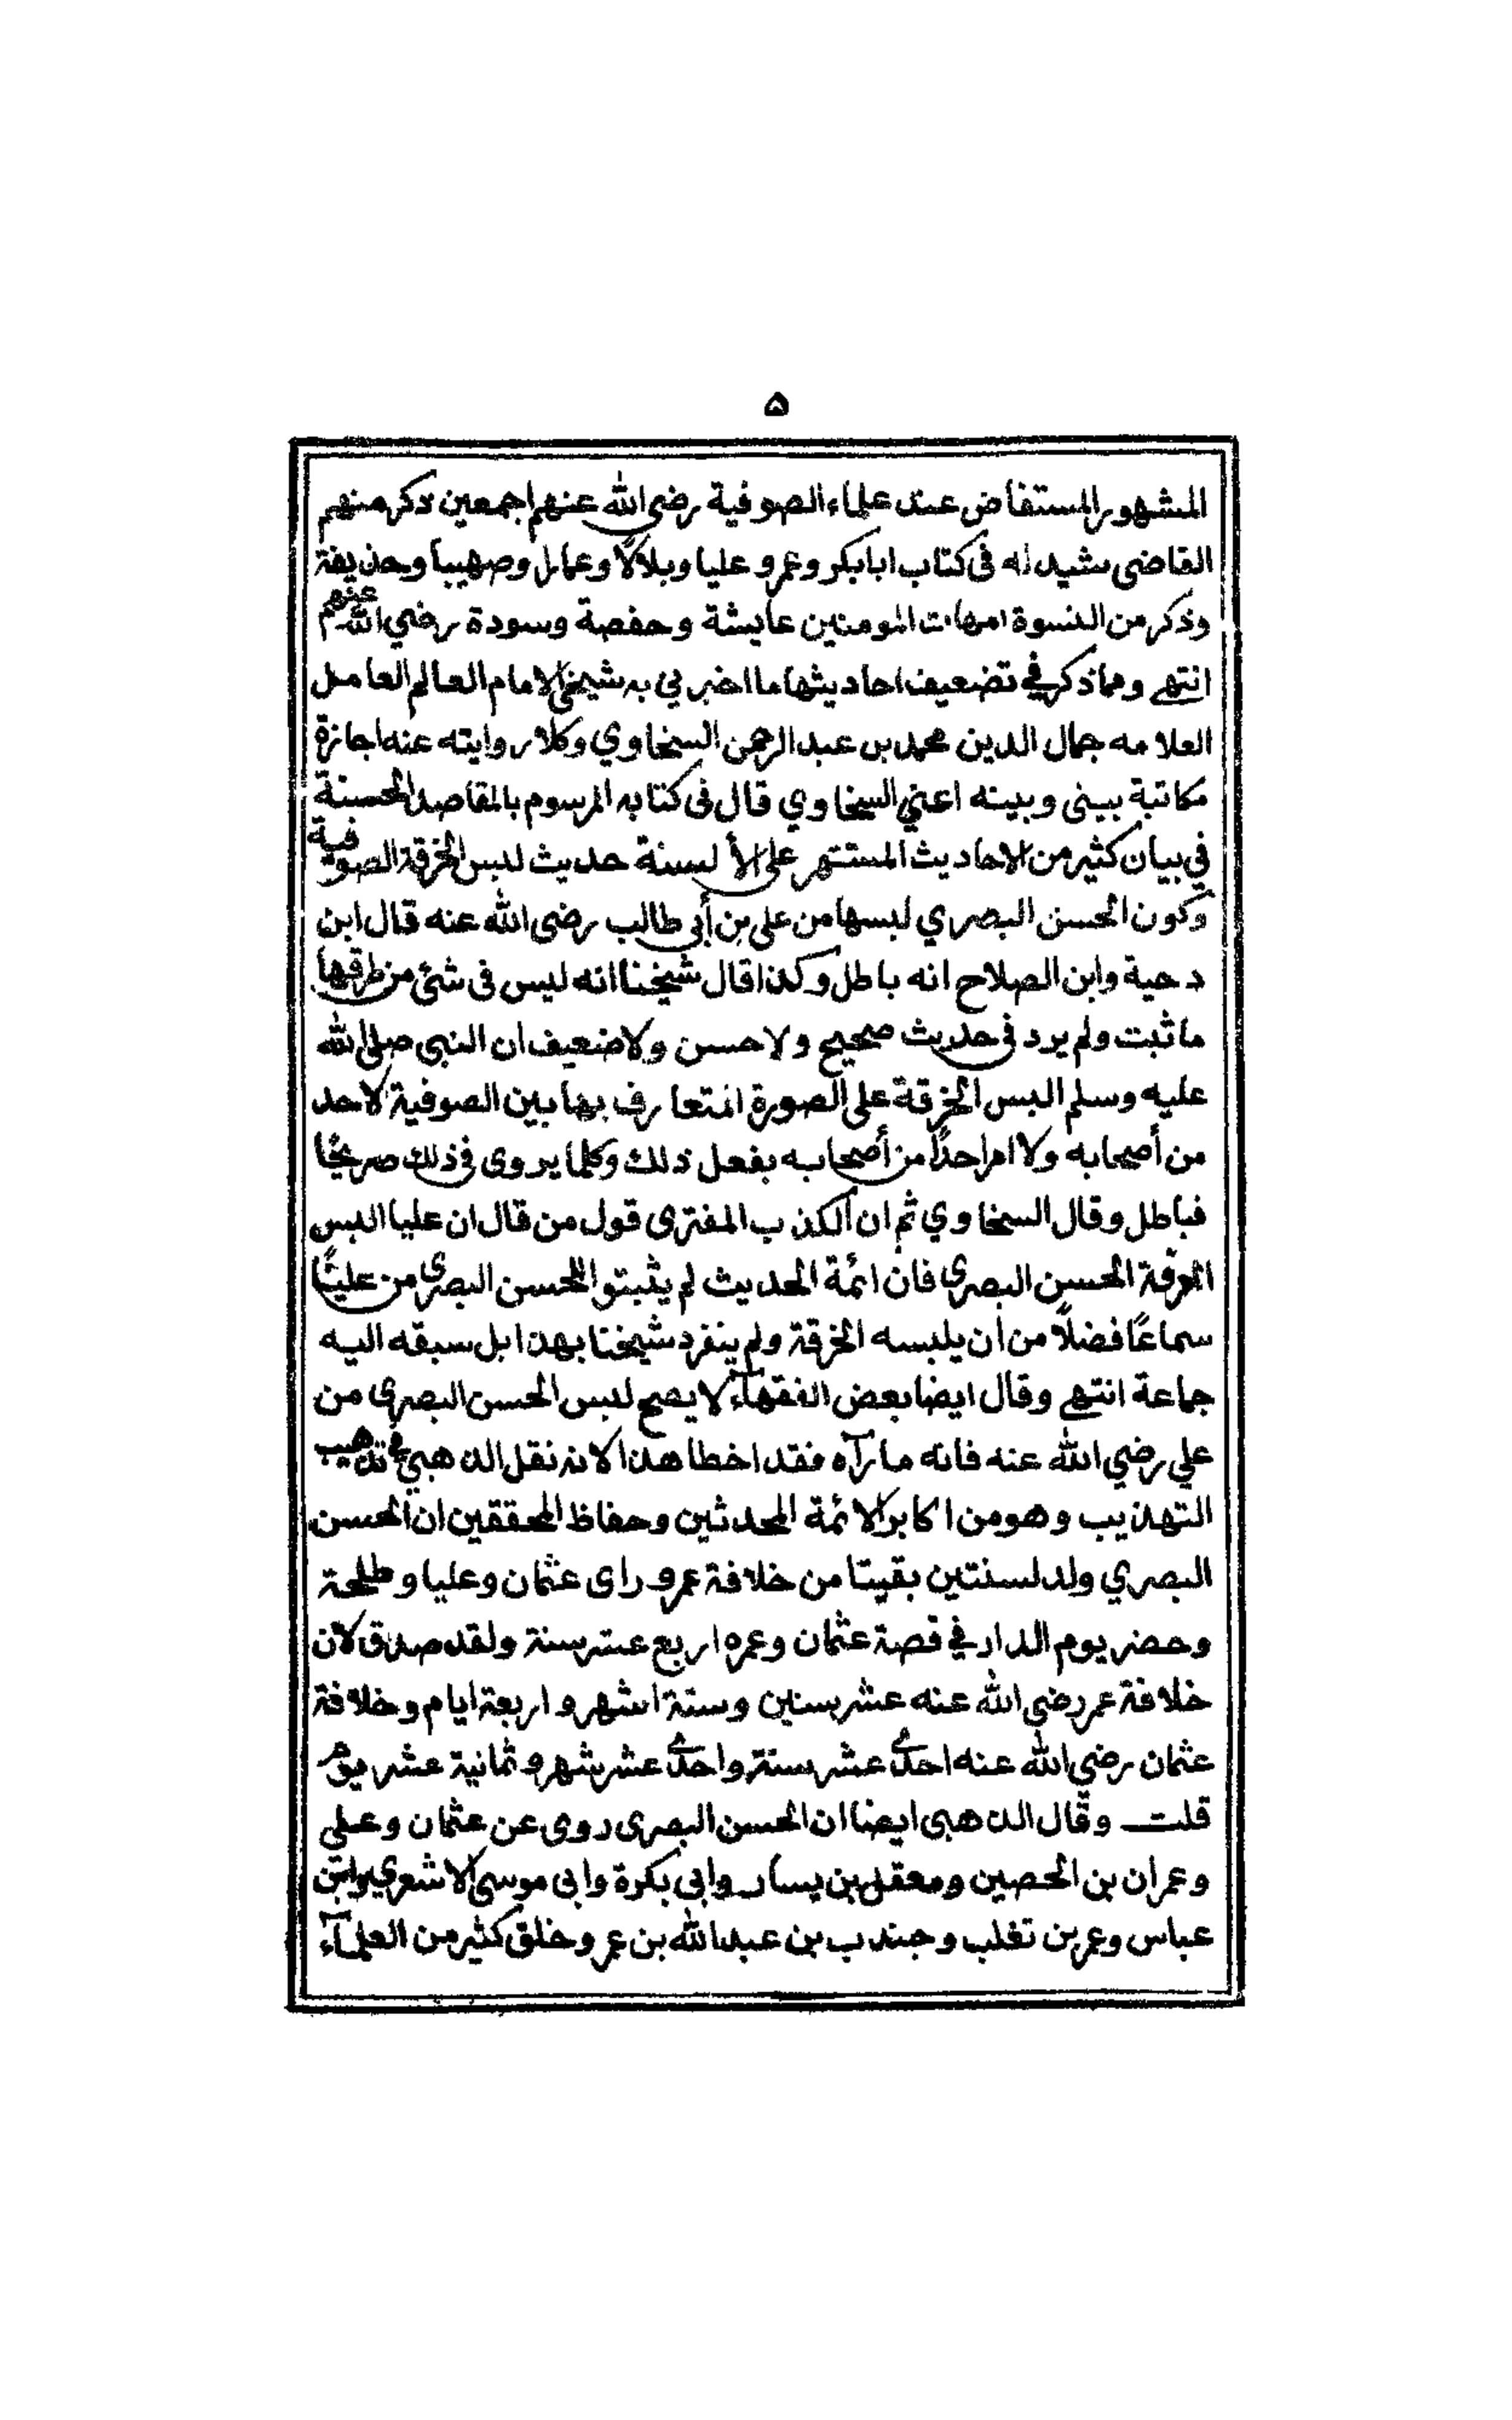 ۵
المشهور المستفاض عند علماء الصوفية رضى الله عنهم اجمعين ذكر منهم
القاضى شيدله فى كتاب ابابكر وعمر و عليا وبلالًا وعمار وصهيبا وحذيفة
وذكر من النسوة امهات المومنين عايشة وحفصة وسودة رضي الله عنهم
انتهى ومما ذكر في تضعيف احاديثها ما اخبرني به شيخى الامام العالم العامل
العلامه جمال الدين محمد بن عبد الرحمن السخاوي وكلار وايته عنه اجازة
مكاتبة بينى وبينه اعني السخاوي قال فى كتابه المرسوم بالمقاصد الحسنة
في بيان كثير من الاحاديث المستتهر على الألسنة حديث لبس الخرقة الصوفية
وكون الحسن البصري لبسها من على بن أبى طالب رضى الله عنه قال ابن
دحية وابن الصلاح انه باطل وكذا قال شيخنا انه ليس فى شئ من طرقها
ما ثبت ولم يرد فى حديث صحيح ولا حسن ولا ضعيف ان النبى صلى الله
عليه وسلم البس الخرقة على الصورة المتعارف بها بين الصوفية لاحد
من أصحابه ولا امر احدًا من أصحابه بفعل ذلك وكلما يروى فى ذلك صريحًا
فباطل وقال السخاوي ثم ان الكذب المفترى قول من قال ان عليا البس
الخرقة الحسن البصرى فان ائمة الحديث لم يثبتوا للحسن البصرى من عليًا
سماعًا فضلًا من ان يلبسه الخرقة ولم ينفرد شيخنا بهذا بل سبقه اليه
جماعة انتهى وقال ايضا بعض الفقهاء لا يصح لبس الحسن البصرى من
علي رضي الله عنه فانه ما رآه فقد اخطا هذا لانه نقل الذهبي في تذهيب
التهذيب وهو من اكابر الائمة المحدثين وحفاظ المحققين ان الحسن
البصري ولد لسنتين بقيتا من خلافة عمر و راى عثمان وعليا وطلحة
وحضر يوم الدار في قصة عثمان وعمره اربع عشر سنة ولقد صدق لان
خلافة عمر رضى الله عنه عشر سنين وستة اشهر و اربعة ايام وخلافة
عثمان رضي الله عنه احدى عشر سنة واحدى عشر شهر و ثمانية عشر يوم
قلت وقال الذهبى ايضا ان الحسن البصرى روى عن عثمان وعلي
وعمران بن الحصين ومعقل بن يسار وابي بكرة وابى موسى الاشعري وابن
عباس وعمر بن تغلب وجندب بن عبد الله بن عمر وخلق كثير من العلمآء